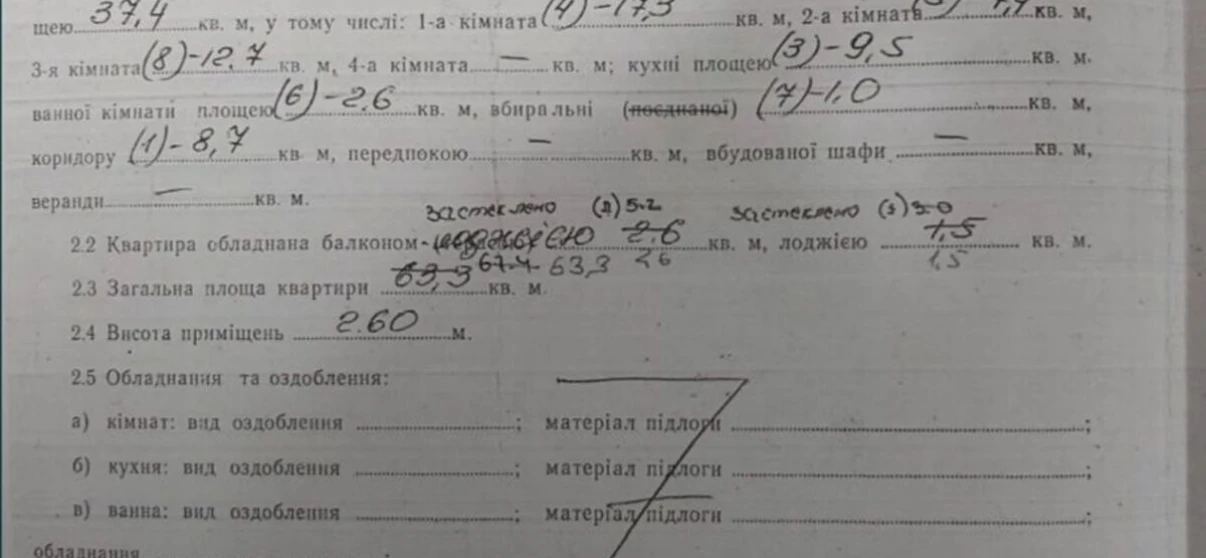 щею 37,4 кв. м, у тому числі: 1-а кімната (4)-17,3 кв. м, 2-а кімната кв. м,
3-я кімната (8)-12,7 кв. м, 4-а кімната — кв. м; кухні площею (3)-9,5 кв. м.
ванної кімнати площею (6)-2.6 кв. м, вбиральні (поєднаної) (7)-1,0 кв. м,
коридору (1)-8,7 кв м, передпокою — кв. м, вбудованої шафи — кв. м,
веранди — кв. м.
застеклено 5.2 застеклено
2.2 Квартира обладнана балконом- лоджією 2.6 кв. м, лоджією 1,5 кв. м.
67.4 63,3 2.6 1,5
2.3 Загальна площа квартири 63,3 кв. м.
2.4 Висота приміщень 2.60 м.
2.5 Обладнання та оздоблення:
а) кімнат: вид оздоблення ; матеріал підлоги ;
б) кухня: вид оздоблення ; матеріал підлоги ;
в) ванна: вид оздоблення ; матеріал підлоги ;
обладнання